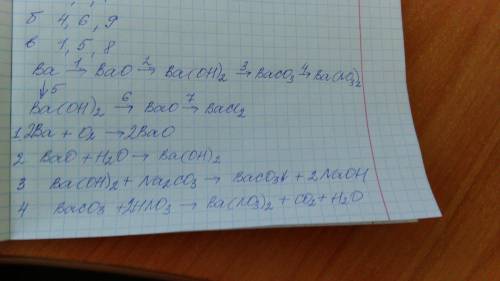 б 4, 6, 9
в 1, 5, 8
Ba →1 BaO →2 Ba(OH)2 →3 BaCO3 →4 Ba(NO3)2
↓5
Ba(OH)2 →6 BaO →7 BaCl2
1 2Ba + O2 → 2BaO
2 BaO + H2O → Ba(OH)2
3 Ba(OH)2 + Na2CO3 → BaCO3↓ + 2NaOH
4 BaCO3 + 2HNO3 → Ba(NO3)2 + CO2 + H2O